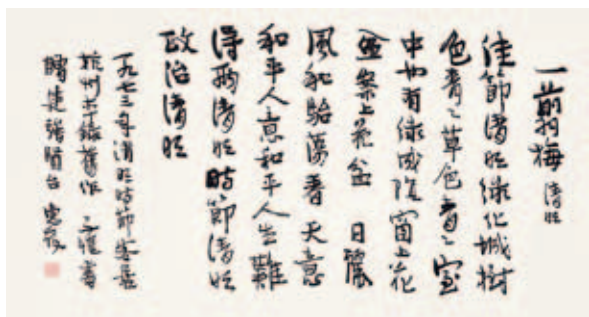 一翦梅 清明
佳節清明綠化城樹
色青々草色青々室
中也有綠成陰窗上花
盆案上花盆 日麗
風和駘蕩春天意
和平人意和平人生難
得兩清明時節清明
政治清明
一九七三年清明時節客居
杭州 錄舊作 書